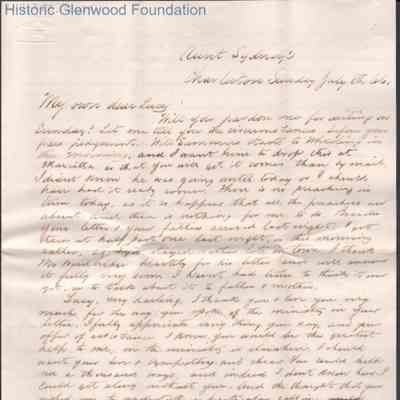 Historic Glenwood Foundation
Aunt Sydney's
Charleston Sunday July 8th, 66.
My own dear Lucy!
Will you pardon me for writing on
Sunday? Let me tell you the circumstances before you
pass judgement. Will Summers starts to Wheeling in
the morning, and I want him to drop this at
Marietta so that you will get it sooner than by mail.
I didn't know he was going until today or I should
have had it ready sooner. There is no preaching in
town today, as it so happens that all the preachers are
absent and there is nothing for me to do. Besides
your letter & your fathers arrived last night. I got
them at half past one last night, or this morning
rather,
Mr Woodbridge heartily for his letter and will answer
it fully very soon. I haven't had time to think it over
yet, or to talk about it to father & mother.
Lucy, my darling, I thank you & love you very
much for the way you spoke of the ministry in your
letter. I fully appreciate every thing you say, and your
offer of assistance. I know you would be the greatest
help to me, in the ministry or elsewhere. I should
want your love & sympathy, and cheer. You could help
me a thousand ways, and indeed I don't know how I
could get along without you. And the thought did you